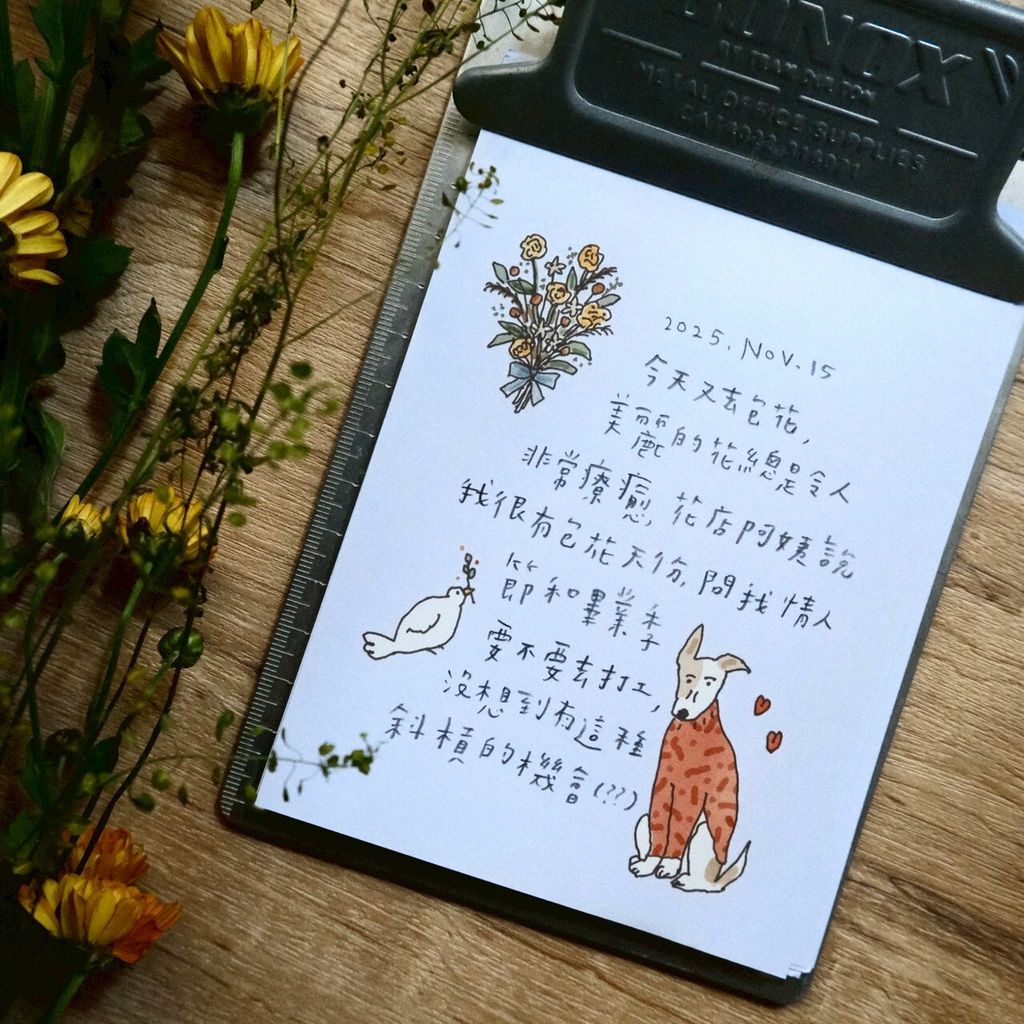 LINOX
BY TEAM DALTON
METAL OFFICE SUPPLIES
2025. NOV. 15
今天又去包花,
美麗的花總是令人
非常療癒, 花店阿姨說
我很有包花天份, 問我情人
節和畢業季
要不要去打工,
沒想到有這種
斜槓的機會(??)